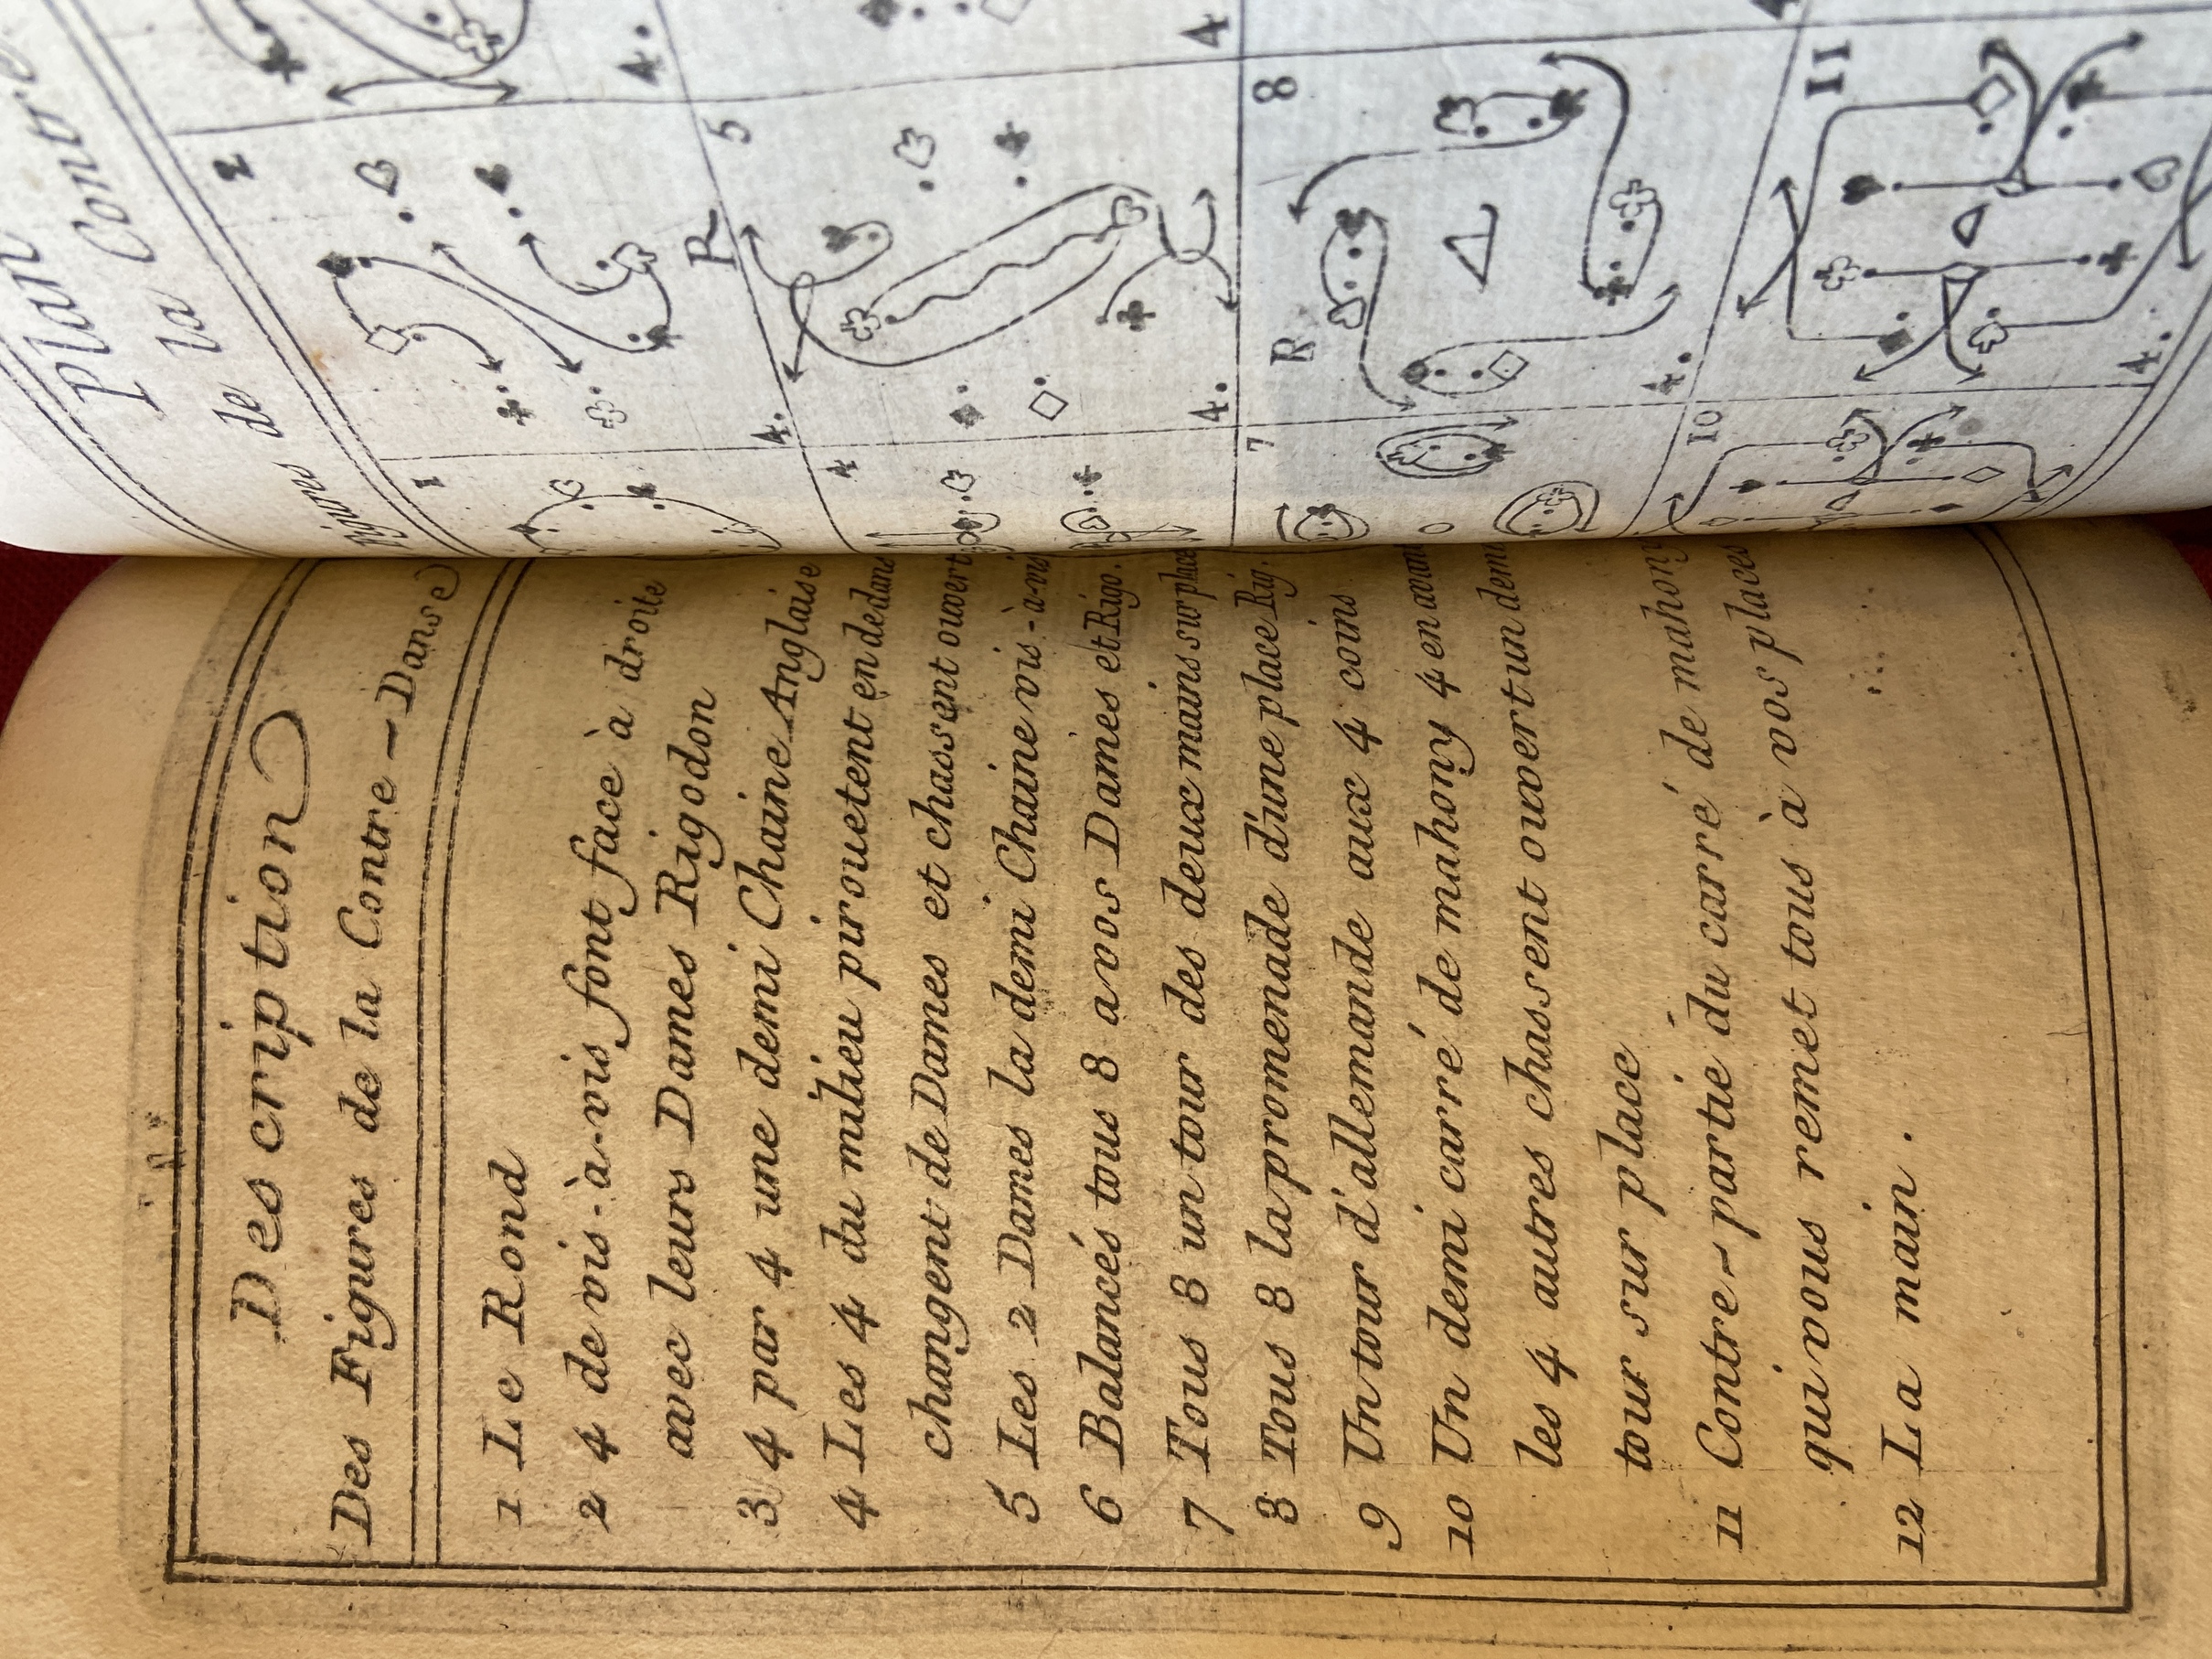 Description
Des Figures de la Contre-Danse
1 Le Rond
2 4 de vis-à-vis font face à droite
avec leurs Dames Rigodon
3 4 par 4 une demi Chaine Anglaise
4 Les 4 du milieu pirouetent en dedans
changent de Dames et chassent ouvert
5 Les 2 Dames la demi Chaine vis-à-vis
6 Balancés tous 8 a vos Dames et Rigo.
7 Tous 8 un tour des deux mains sur place
8 Tous 8 la promenade d'une place Rig.
9 Un tour d'allemande aux 4 coins
10 Un demi carré de mahony 4 en avant
les 4 autres chassent ouvert un demi
tour sur place
11 Contre-partie du carré de mahony
qui vous remet tous à vos places
12 La main.
Plan
de la Contre
Figures
1
2
4.
4.
4
R
5
4.
4
7
R
8
4.
10
11
4.